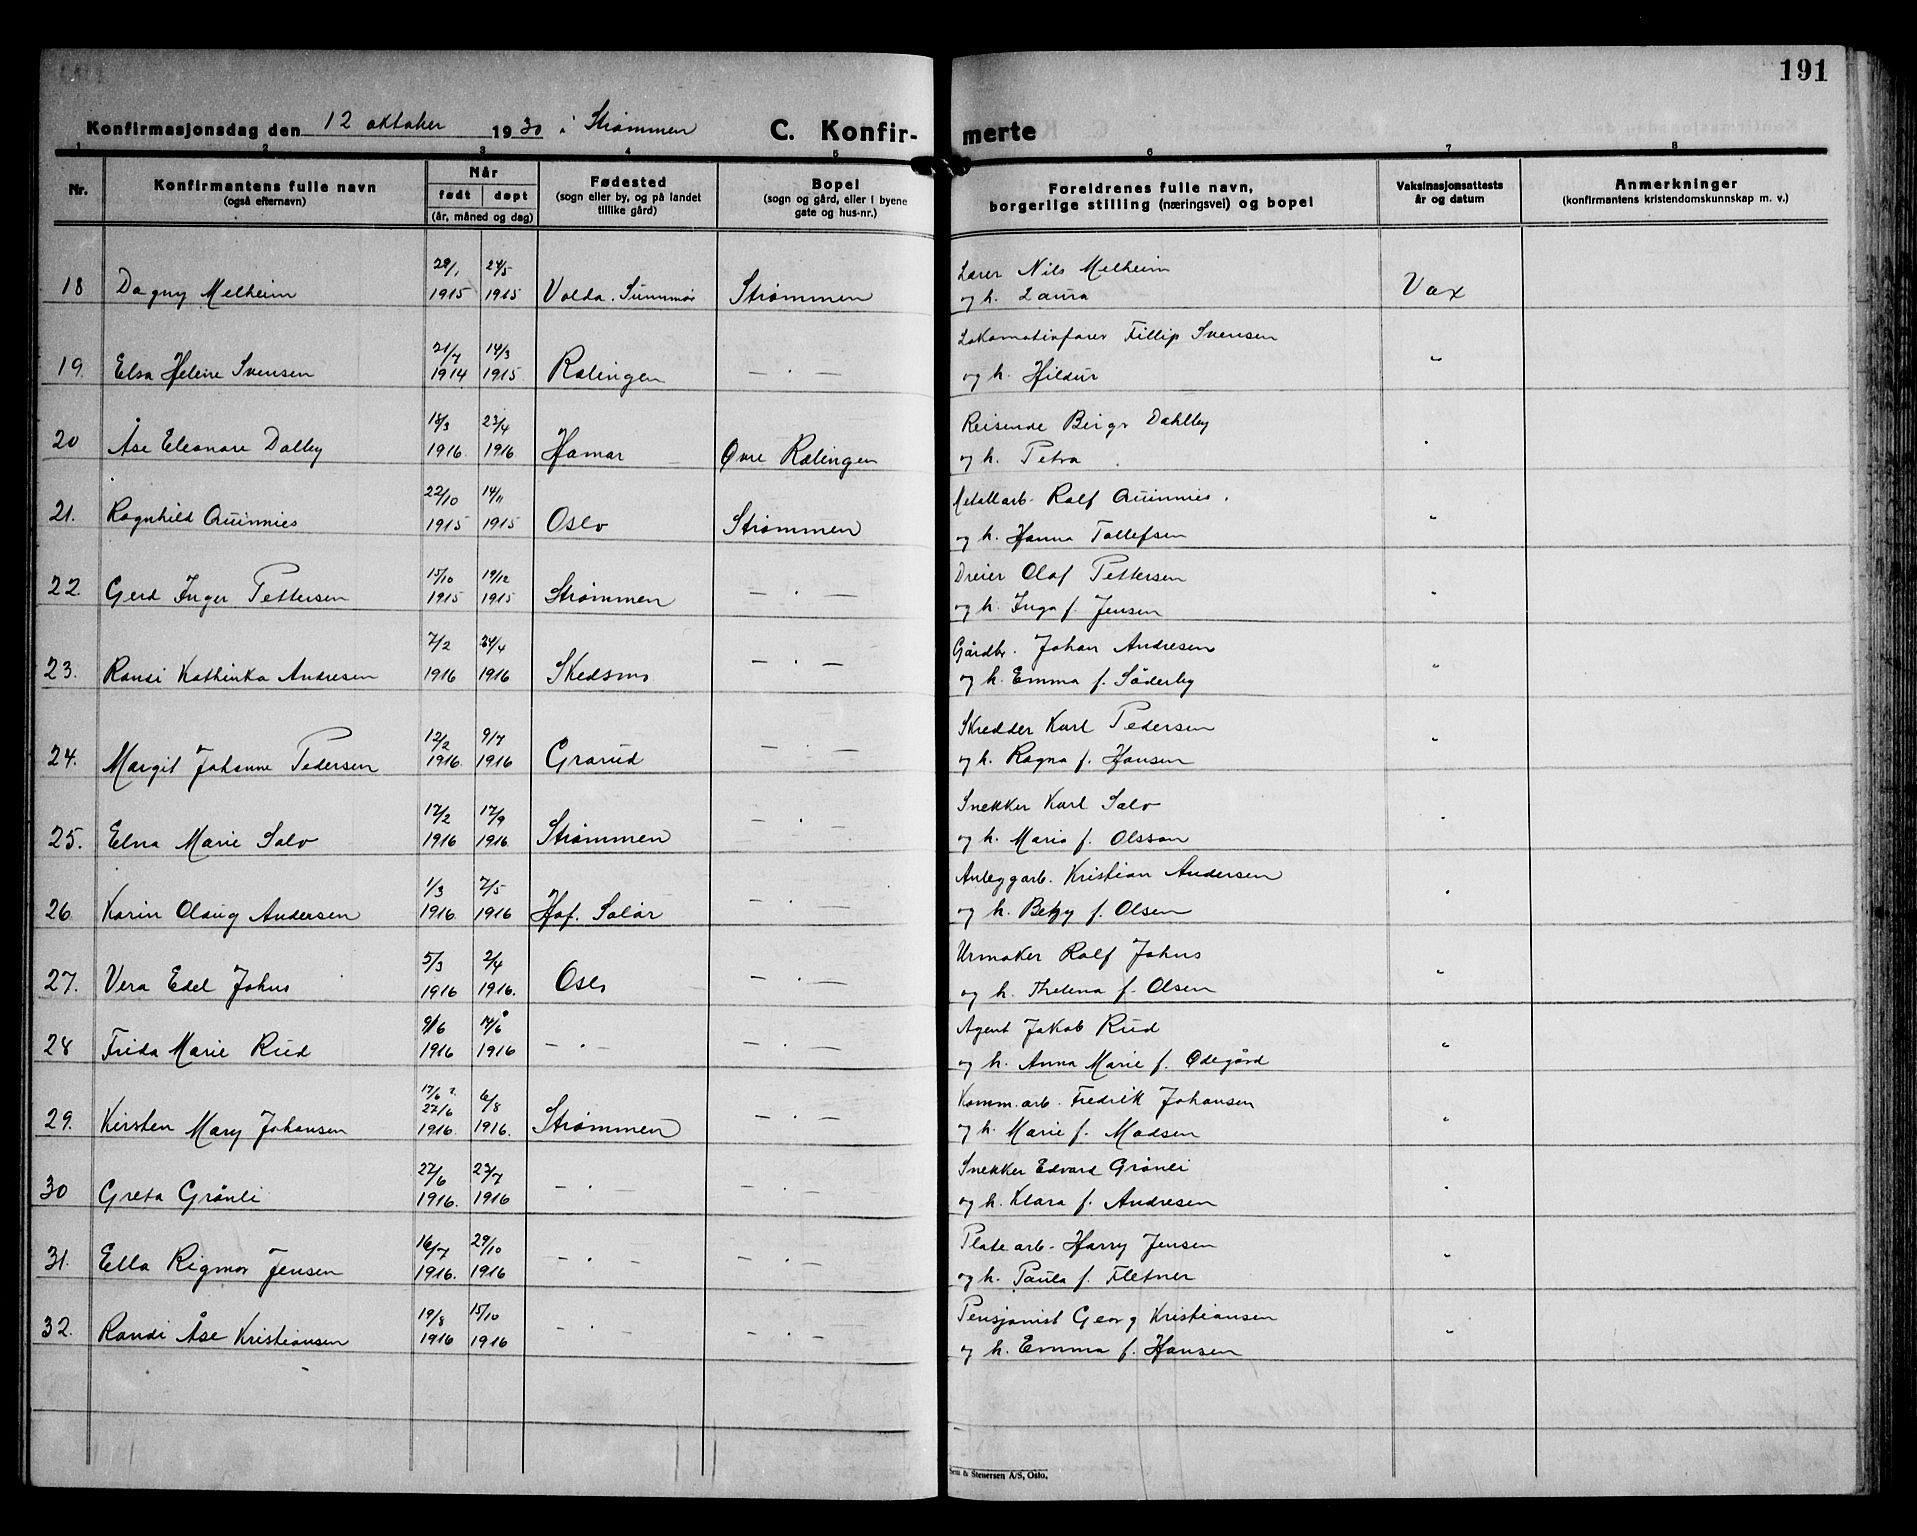 191
Konfirmasjonsdag den 12 oktober 1930 i Strømmen C. Konfir- merte
1 2 3 4 5 6 7 8
Nr. Konfirmantens fulle navn (også efternavn) Når født døpt (år, måned og dag) Fødested (sogn eller by, og på landet tillike gård) Bopel (sogn og gård, eller i byene gate og hus-nr.) Foreldrenes fulle navn, borgerlige stilling (næringsvei) og bopel Vaksinasjonsattests år og datum Anmerkninger (konfirmantens kristendomskunnskap m. v.)
28/1 24/5 Lærer Nils Melheim
18 Dagny Melheim 1915 1915 Volda. Sunnmør Strømmen og h. Laura Vax
21/7 14/3 Lokomotivfører Fillip Svensen
19. Elsa Helene Svensen 1914 1915 Rælingen — . — og h. Hildur "
18/3 23/4 Reisende Birger Dahlby
20 Åse Eleonore Dalby 1916. 1916 Hamar Øvre Rælingen og h. Petra "
22/10 14/11 Metallarb. Rolf Quinnies.
21. Ragnhild Quinnies 1915 1915 Oslo Strømmen og h. Hanna Tollefsen "
15/10 19/12 Dreier Olaf Pettersen
22. Gerd Inger Pettersen 1915 1915 Strømmen — . — og h. Inga f. Jensen "
7/2 24/4 Gårdbr. Johan Andresen
23. Randi Kathinka Andresen 1916 1916 Skedsmo — . — og h. Emma f. Söderby "
12/2 9/7 Skredder Karl Pedersen
24. Margit Johanne Pedersen 1916. 1916 Grorud — . — og h. Ragna f. Hansen "
17/2 17/9 Snekker Karl Salo
25. Elna Marie Salo 1916 1916 Strømmen — . — og h. Maria f. Olsson "
1/3 7/5 Anleggarb. Kristian Andersen
26 Karin Olaug Andersen 1916. 1916 Hof. Solør — . — og h. Betzy f. Olsen "
5/3 2/4 Urmaker Rolf Johns
27. Vera Edel Johns 1916 1916. Oslo — . — og h. Thelena f. Olsen "
9/6 Agent Jakob Rud
28 Frida Marie Rud 1916 1916 — . — — . — og h. Anna Marie f. Ødegård "
17/6 ? 27/6 6/8 Komm.arb. Fredrik Johansen
29. Kirsten Mary Johansen 1916. 1916. Strømmen — . — og h. Marie f. Madsen "
22/6 23/7 Snekker Edvard Grönli
30 Greta Grönli 1916. 1916 — . — — . — og h. Klara f. Andresen "
16/7 29/10 Platearb. Harry Jensen
31. Ella Rigmor Jensen 1916. 1916 — . — — . — og h. Paula f. Fletner "
19/8 15/10 Pensjonist Georg Kristiansen
32. Randi Åse Kristiansen 1916 1916 — . — — . — og h. Emma f. Hansen "
Sem & Stenersen A/S, Oslo.